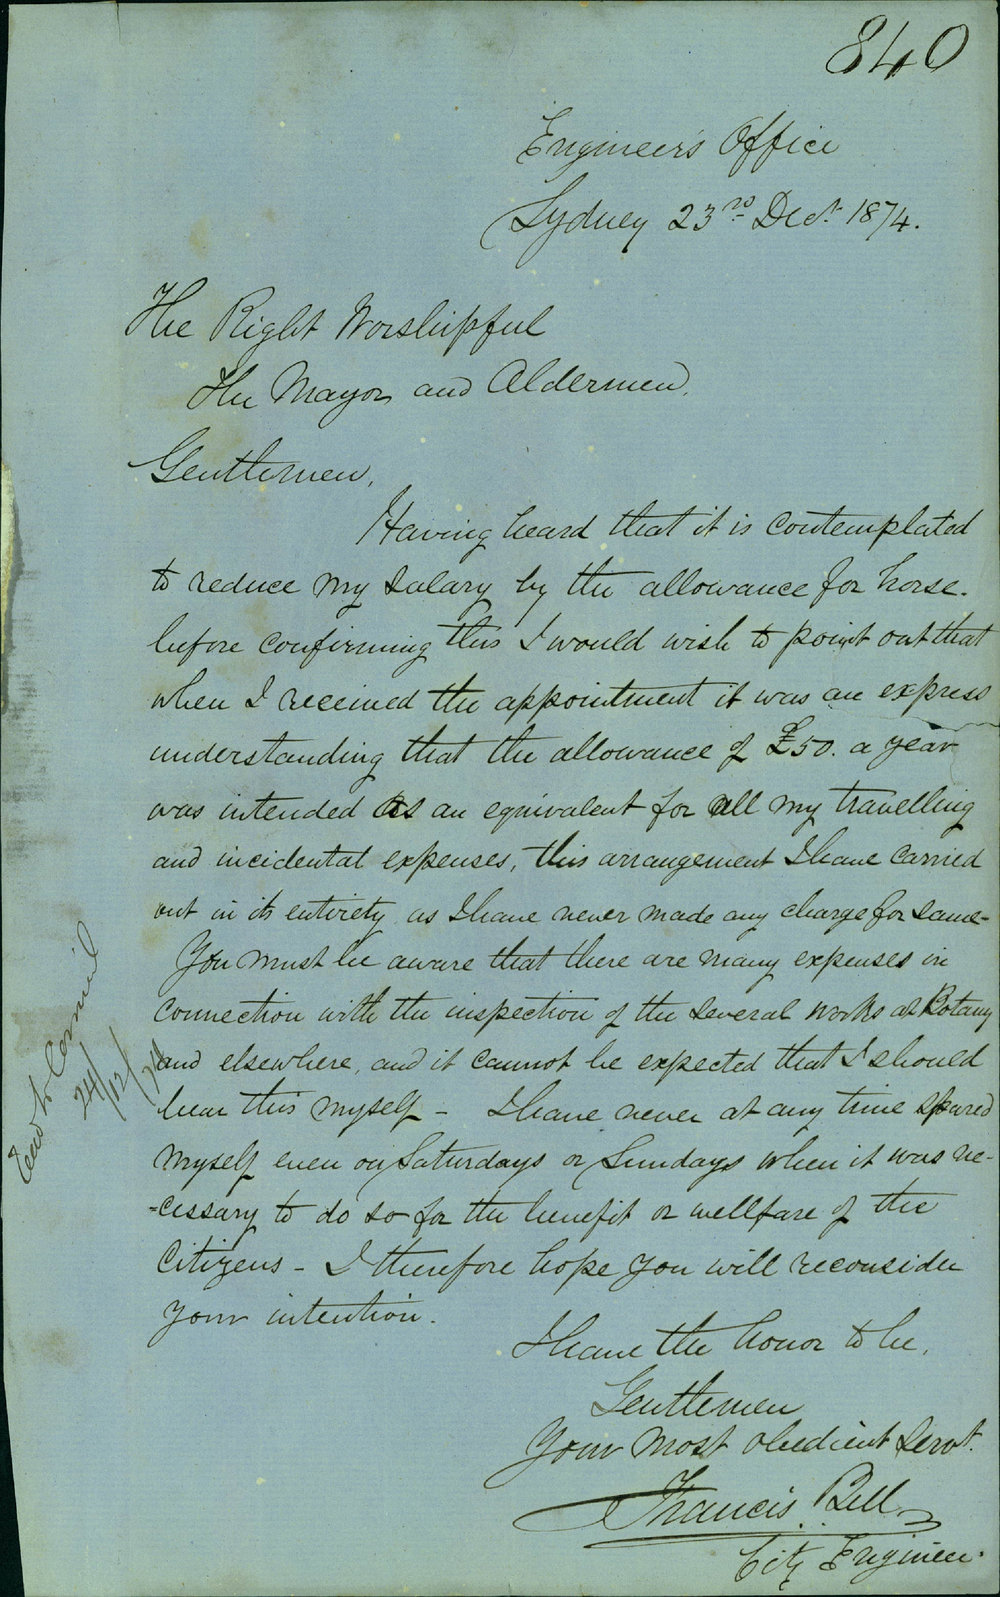 840
Engineer's Office
Sydney 23rd Decr 1874.
The Right Worshipful
The Mayor and Aldermen.
Gentlemen,
Having heard that it is contemplated
to reduce my salary by the allowance for horse.
before confirming this I would wish to point out that
when I received the appointment it was an express
understanding that the allowance of £50. a year
was intended as an equivalent for all my travelling
and incidental expenses, this arrangement I have carried
out in its entirety as I have never made any charge for same-
You must be aware that there are many expenses in
connection with the inspection of the several works at Botany
and elsewhere, and it cannot be expected that I should
bear this myself - I have never at any time spared
myself even on Saturdays or Sundays when it was ne-
-cessary to do so for the benefit or wellfare of the
Citizens - I therefore hope you will reconsider
your intention.
I have the honor to be,
Gentlemen
Your most obedient Servt.
Francis Bell
City Engineer.
to Council
24/12/74